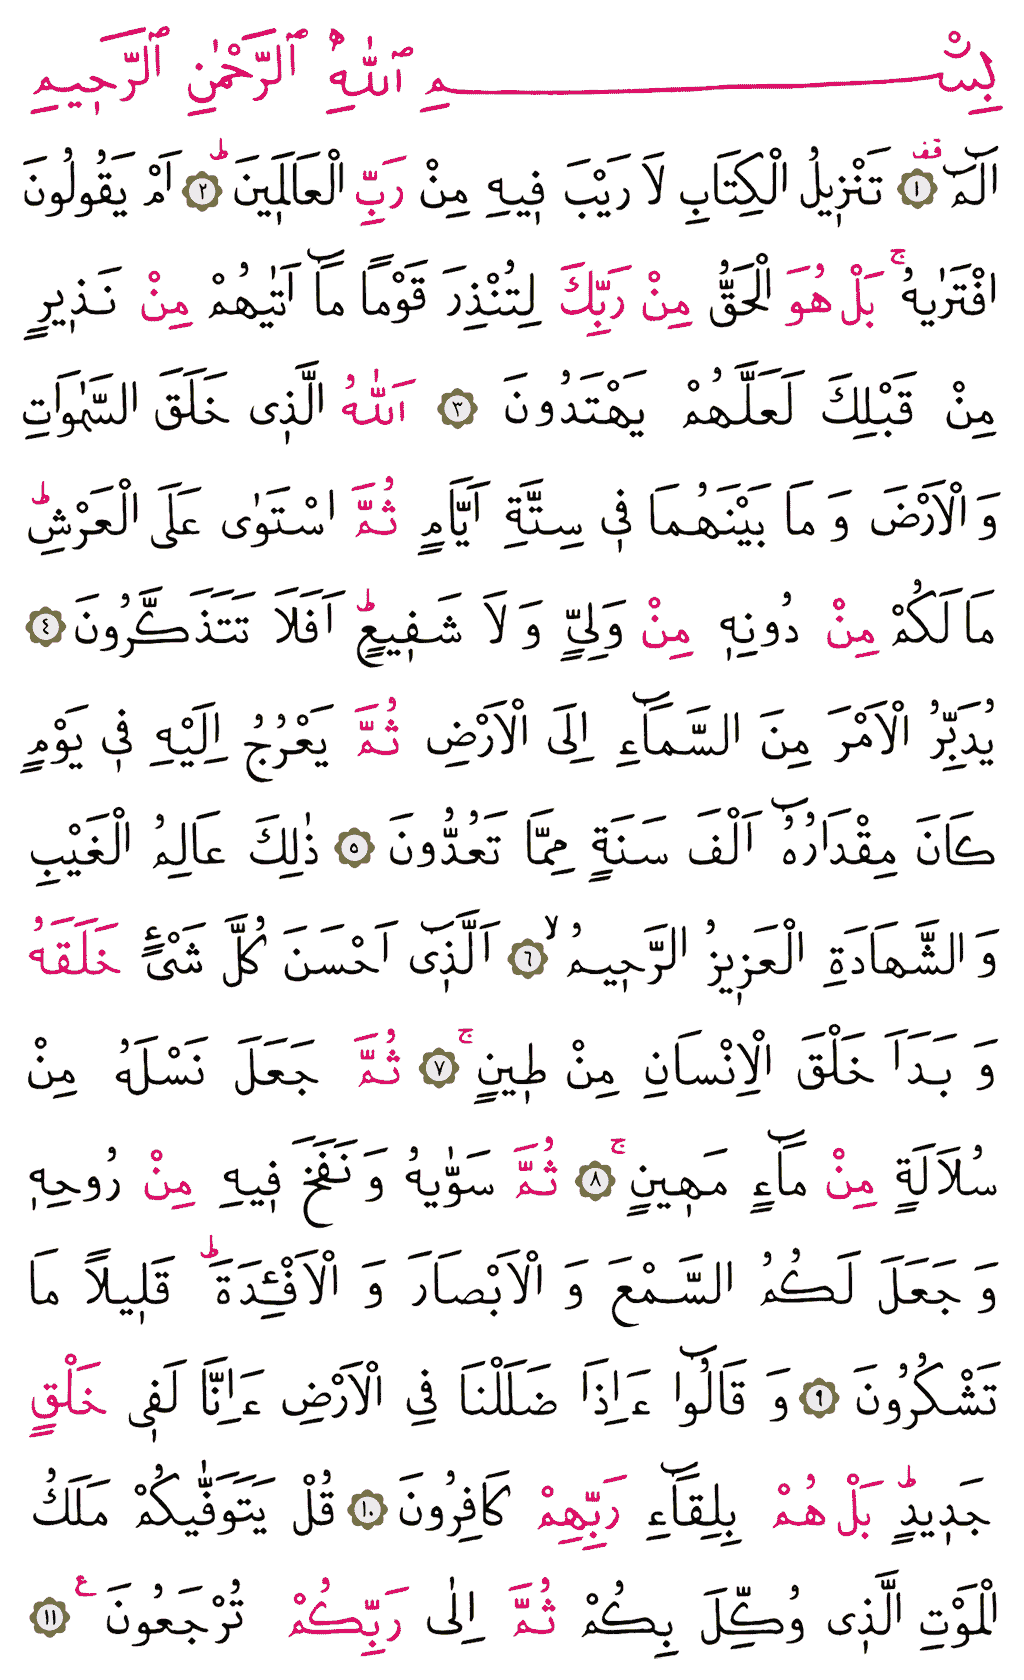 بِسْمِ اللّٰهِ الرَّحْمٰنِ الرَّح۪يمِ
الٓمٓ ۚ ﴿١﴾ تَنْز۪يلُ الْكِتَابِ لَا رَيْبَ ف۪يهِ مِنْ رَبِّ الْعَالَم۪ينَۜ ﴿٢﴾ اَمْ يَقُولُونَ
افْتَرٰيهُۚ بَلْ هُوَ الْحَقُّ مِنْ رَبِّكَ لِتُنْذِرَ قَوْمًا مَٓا اَتٰيهُمْ مِنْ نَذ۪يرٍ
مِنْ قَبْلِكَ لَعَلَّهُمْ يَهْتَدُونَ ﴿٣﴾ اَللّٰهُ الَّذ۪ى خَلَقَ السَّمٰوَاتِ
وَ الْاَرْضَ وَ مَا بَيْنَهُمَا ف۪ى سِتَّةِ اَيَّامٍ ثُمَّ اسْتَوٰى عَلَى الْعَرْشِۜ
مَا لَكُمْ مِنْ دُونِه۪ مِنْ وَلِىٍّ وَ لَا شَف۪يعٍۜ اَفَلَا تَتَذَكَّرُونَ ﴿٤﴾
يُدَبِّرُ الْاَمْرَ مِنَ السَّمَٓاءِ اِلَى الْاَرْضِ ثُمَّ يَعْرُجُ اِلَيْهِ ف۪ى يَوْمٍ
كَانَ مِقْدَارُهُٓ اَلْفَ سَنَةٍ مِمَّا تَعُدُّونَ ﴿٥﴾ ذٰلِكَ عَالِمُ الْغَيْبِ
وَ الشَّهَادَةِ الْعَز۪يزُ الرَّح۪يمُۙ ﴿٦﴾ اَلَّذ۪ٓى اَحْسَنَ كُلَّ شَىْءٍ خَلَقَهُ
وَ بَدَاَ خَلْقَ الْاِنْسَانِ مِنْ ط۪ينٍۚ ﴿٧﴾ ثُمَّ جَعَلَ نَسْلَهُ مِنْ
سُلَالَةٍ مِنْ مَٓاءٍ مَه۪ينٍۚ ﴿٨﴾ ثُمَّ سَوّٰيهُ وَ نَفَخَ ف۪يهِ مِنْ رُوحِه۪
وَ جَعَلَ لَكُمُ السَّمْعَ وَ الْاَبْصَارَ وَ الْاَفْـِٔدَةَۜ قَل۪يلًا مَا
تَشْكُرُونَ ﴿٩﴾ وَ قَالُٓوا ءَاِذَا ضَلَلْنَا فِى الْاَرْضِ ءَاِنَّا لَف۪ى خَلْقٍ
جَد۪يدٍۜ بَلْ هُمْ بِلِقَٓاءِ رَبِّهِمْ كَافِرُونَ ﴿١٠﴾ قُلْ يَتَوَفّٰيكُمْ مَلَكُ
الْمَوْتِ الَّذ۪ى وُكِّلَ بِكُمْ ثُمَّ اِلٰى رَبِّكُمْ تُرْجَعُونَ ع ﴿١١﴾